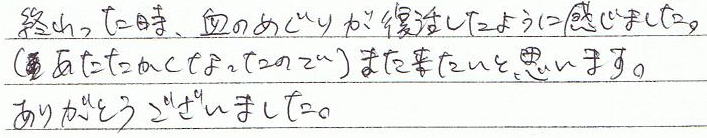 終わった時、血のめぐりが復活したように感じました。
(あたたかくなったので)また来たいと思います。
ありがとうございました。